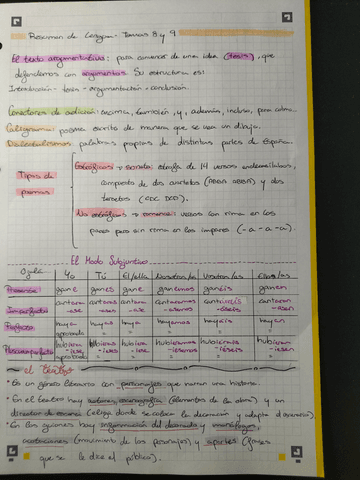 Resumen de Lengua - Temas 8 y 9
El texto argumentativo: para convencer de una idea (tesis), que
defendemos con argumentos. Su estructura es:
Introducción - tesis - argumentación - conclusión.
Conectores de adición: encima, también, y, además, incluso, para colmo.
Caligrama: poema escrito de manera que se usa un dibujo.
Dialectalismos: palabras propias de distintas partes de España.
Tipos de poemas
Estróficos → soneto: estrofa de 14 versos endecasílabos,
compuesto de dos cuartetos (ABBA ABBA) y dos
tercetos (CDC DCD).
No estróficos → romance: versos con rima en los
pares pero sin rima en los impares (-a-a-a).
El Modo Subjuntivo
Yo Tú El/ella Nosotros/as Vosotros/as Ellos/as
Presente gane ganes gane ganemos ganéis ganen
Imperfecto
-ase -ases -ase -asemos -aseis -asen
Perfecto haya hayas haya hayamos hayáis hayan
Pluscuamperfecto hubiera hubieras hubiera hubiéramos hubierais hubieran
-iese -ieses -iese -iésemos -ieseis -iesen
el teatro
• Es un género literario con personajes que narran una historia.
• En el teatro hay autores, escenografía (elementos de la obra) y un
director de escena (elige donde se coloca la decoración y adapta el escenario).
• En los guiones hay organización del decorado y monólogos,
acotaciones (movimiento de los personajes) y apartes (frases
que se le dice al público).